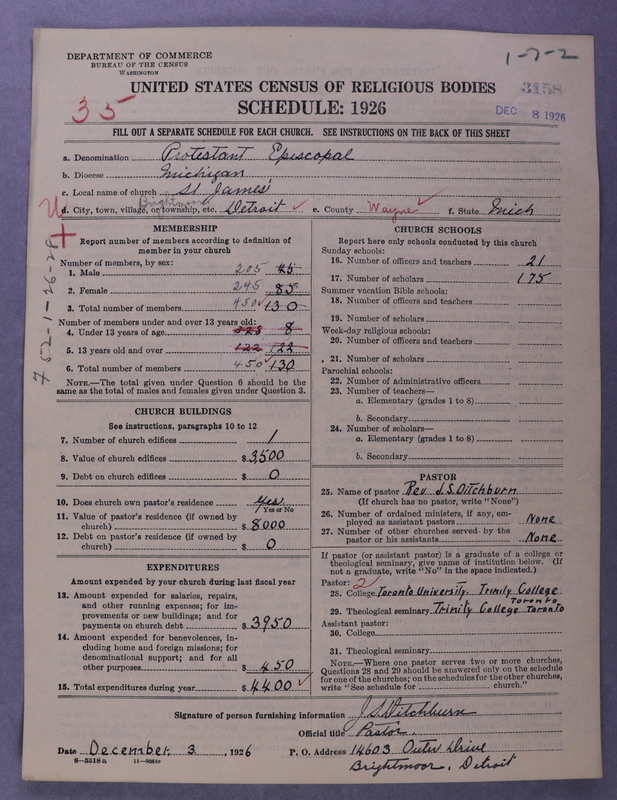 DEPARTMENT OF COMMERCE
BUREAU OF THE CENSUS
WASHINGTON
1-7-2
UNITED STATES CENSUS OF RELIGIOUS BODIES
3158
SCHEDULE: 1926
DEC 8 1926
35
FILL OUT A SEPARATE SCHEDULE FOR EACH CHURCH. SEE INSTRUCTIONS ON THE BACK OF THIS SHEET
a. Denomination Protestant Episcopal
b. Diocese Michigan
c. Local name of church St James'
Brightmoor
d. City, town, village, or township, etc. Detroit e. County Wayne f. State Mich
MEMBERSHIP
Report number of members according to definition of
member in your church
Number of members, by sex:
1. Male 205 45
2. Female 245 85
3. Total number of members 450 130
Number of members under and over 13 years old:
4. Under 13 years of age 328 8
5. 13 years old and over 122 122
6. Total number of members 450 130
NOTE.—The total given under Question 6 should be the
same as the total of males and females given under Question 3.
CHURCH BUILDINGS
See instructions, paragraphs 10 to 12
7. Number of church edifices 1
8. Value of church edifices $3,500
9. Debt on church edifices $ 0
10. Does church own pastor's residence Yes
Yes or No
11. Value of pastor's residence (if owned by
church) $8000
12. Debt on pastor's residence (if owned by
church) $ 0
EXPENDITURES
Amount expended by your church during last fiscal year
13. Amount expended for salaries, repairs,
and other running expenses; for im-
provements or new buildings; and for
payments on church debt $3950
14. Amount expended for benevolences, in-
cluding home and foreign missions; for
denominational support; and for all
other purposes $ 450
15. Total expenditures during year $4400
CHURCH SCHOOLS
Report here only schools conducted by this church
Sunday schools:
16. Number of officers and teachers 21
17. Number of scholars 175
Summer vacation Bible schools:
18. Number of officers and teachers
19. Number of scholars
Week-day religious schools:
20. Number of officers and teachers
21. Number of scholars
Parochial schools:
22. Number of administrative officers
23. Number of teachers—
a. Elementary (grades 1 to 8)
b. Secondary
24. Number of scholars—
a. Elementary (grades 1 to 8)
b. Secondary
PASTOR
25. Name of pastor Rev J.S. Ditchburn
(If church has no pastor, write "None")
26. Number of ordained ministers, if any, em-
ployed as assistant pastors None
27. Number of other churches served by the
pastor or his assistants None
If pastor (or assistant pastor) is a graduate of a college or
theological seminary, give name of institution below. (If
not a graduate, write "No" in the space indicated.)
Pastor: 2
28. College Toronto University. Trinity College
Toronto
29. Theological seminary Trinity College Toronto
Assistant pastor:
30. College
31. Theological seminary
NOTE.—Where one pastor serves two or more churches,
Questions 28 and 29 should be answered only on the schedule
for one of the churches; on the schedules for the other churches,
write "See schedule for church."
Signature of person furnishing information J.S. Ditchburn
Official title Pastor.
Date December, 3, 1926 P. O. Address 14603 Outer Drive
8-5518 a 11-9054c
Brightmoor, Detroit